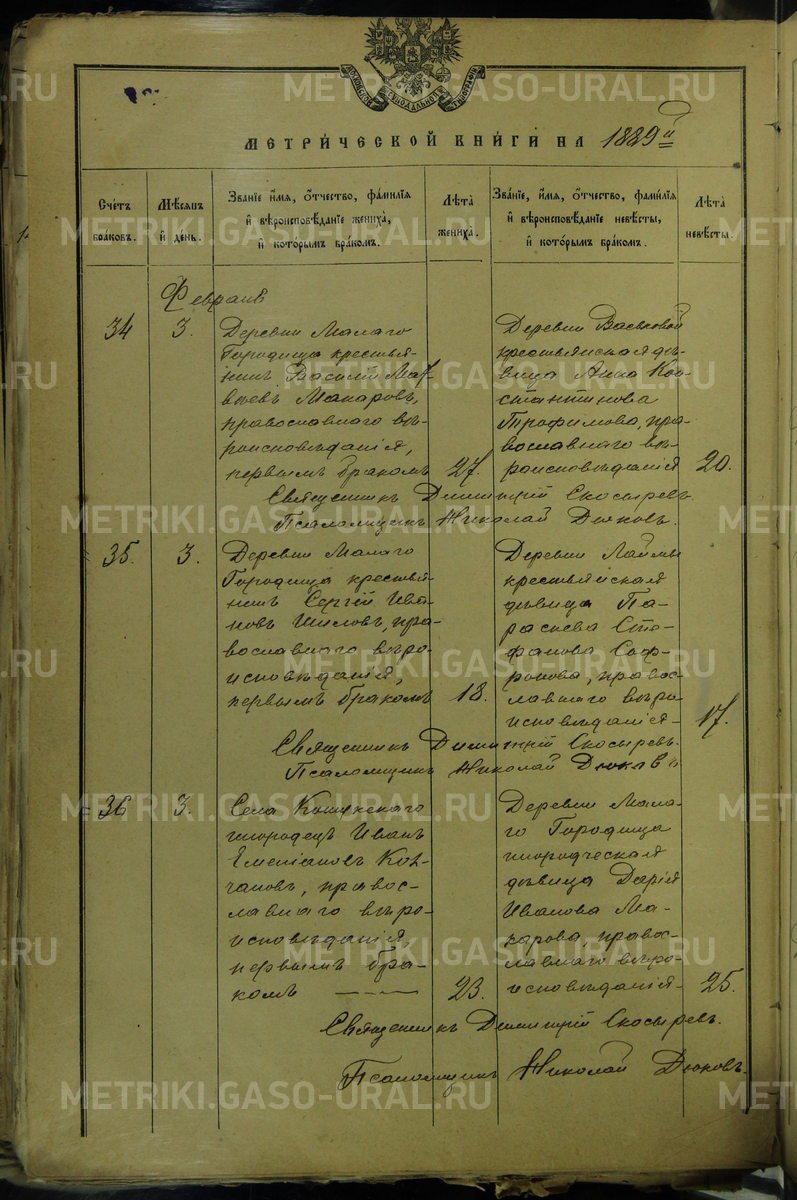 МОСКОВСКОЙ СѴНОДАЛЬНОЙ ТИПОГРАФІИ
METRIKI.GASO-URAL.RU
МЕТРИ́ЧЕСКОЙ КНИ́ГИ НА 1889й
Сче́тъ браковъ.
Мѣсяцъ и҆ день.
Зва́ніе и҆́мя, ѻ҆́тчество, фами́лія и҆ вѣроисповѣ́даніе жениха̀, и҆ кото́рымъ бра́комъ.
Лѣта̀ жениха̀.
Зва́ніе, и҆́мя, ѻ҆́тчество, фами́лія и҆ вѣроисповѣ́даніе невѣ́сты, и҆ кото́рымъ бра́комъ.
Лѣта̀ невѣ́сты.
Февраль
34
3.
Деревни Малаго
Городища крестья-
нинъ Василій Мат-
вѣевъ Макаровъ,
православнаго вѣ-
роисповѣданія,
первымъ бракомъ
27.
Деревни
крестьянская дѣ-
вица Анна Кон-
стантинова
Трофимова, пра-
вославнаго вѣ-
роисповѣданія
20.
Священникъ Димитрій Скосыревъ.
Псаломщикъ Николай Дюковъ.
35.
3.
Деревни Малаго
Городища крестья-
нинъ Сергій Ива-
новъ Шиловъ, пра-
вославнаго вѣро-
исповѣданія,
первымъ бракомъ
18.
Деревни Лаймы
крестьянская
дѣвица Па-
раскева Сте-
фанова Соф-
ронова, правос-
лавнаго вѣро-
исповѣданія-
17.
Священникъ Димитрій Скосыревъ.
Псаломщикъ Николай Дюковъ
36
3.
Села Кошукскаго
инородецъ Иванъ
Емелiановъ Кол-
чановъ, правос-
лавнаго вѣро-
исповѣданія,
первымъ бра-
комъ
23.
Деревни Мала-
го Городища
инородческая
дѣвица Дарія
Иванова Ма-
карова, правос-
лавнаго вѣро-
исповѣданія-
25.
Священникъ Димитрій Скосыревъ.
Псаломщикъ Николай Дюковъ.